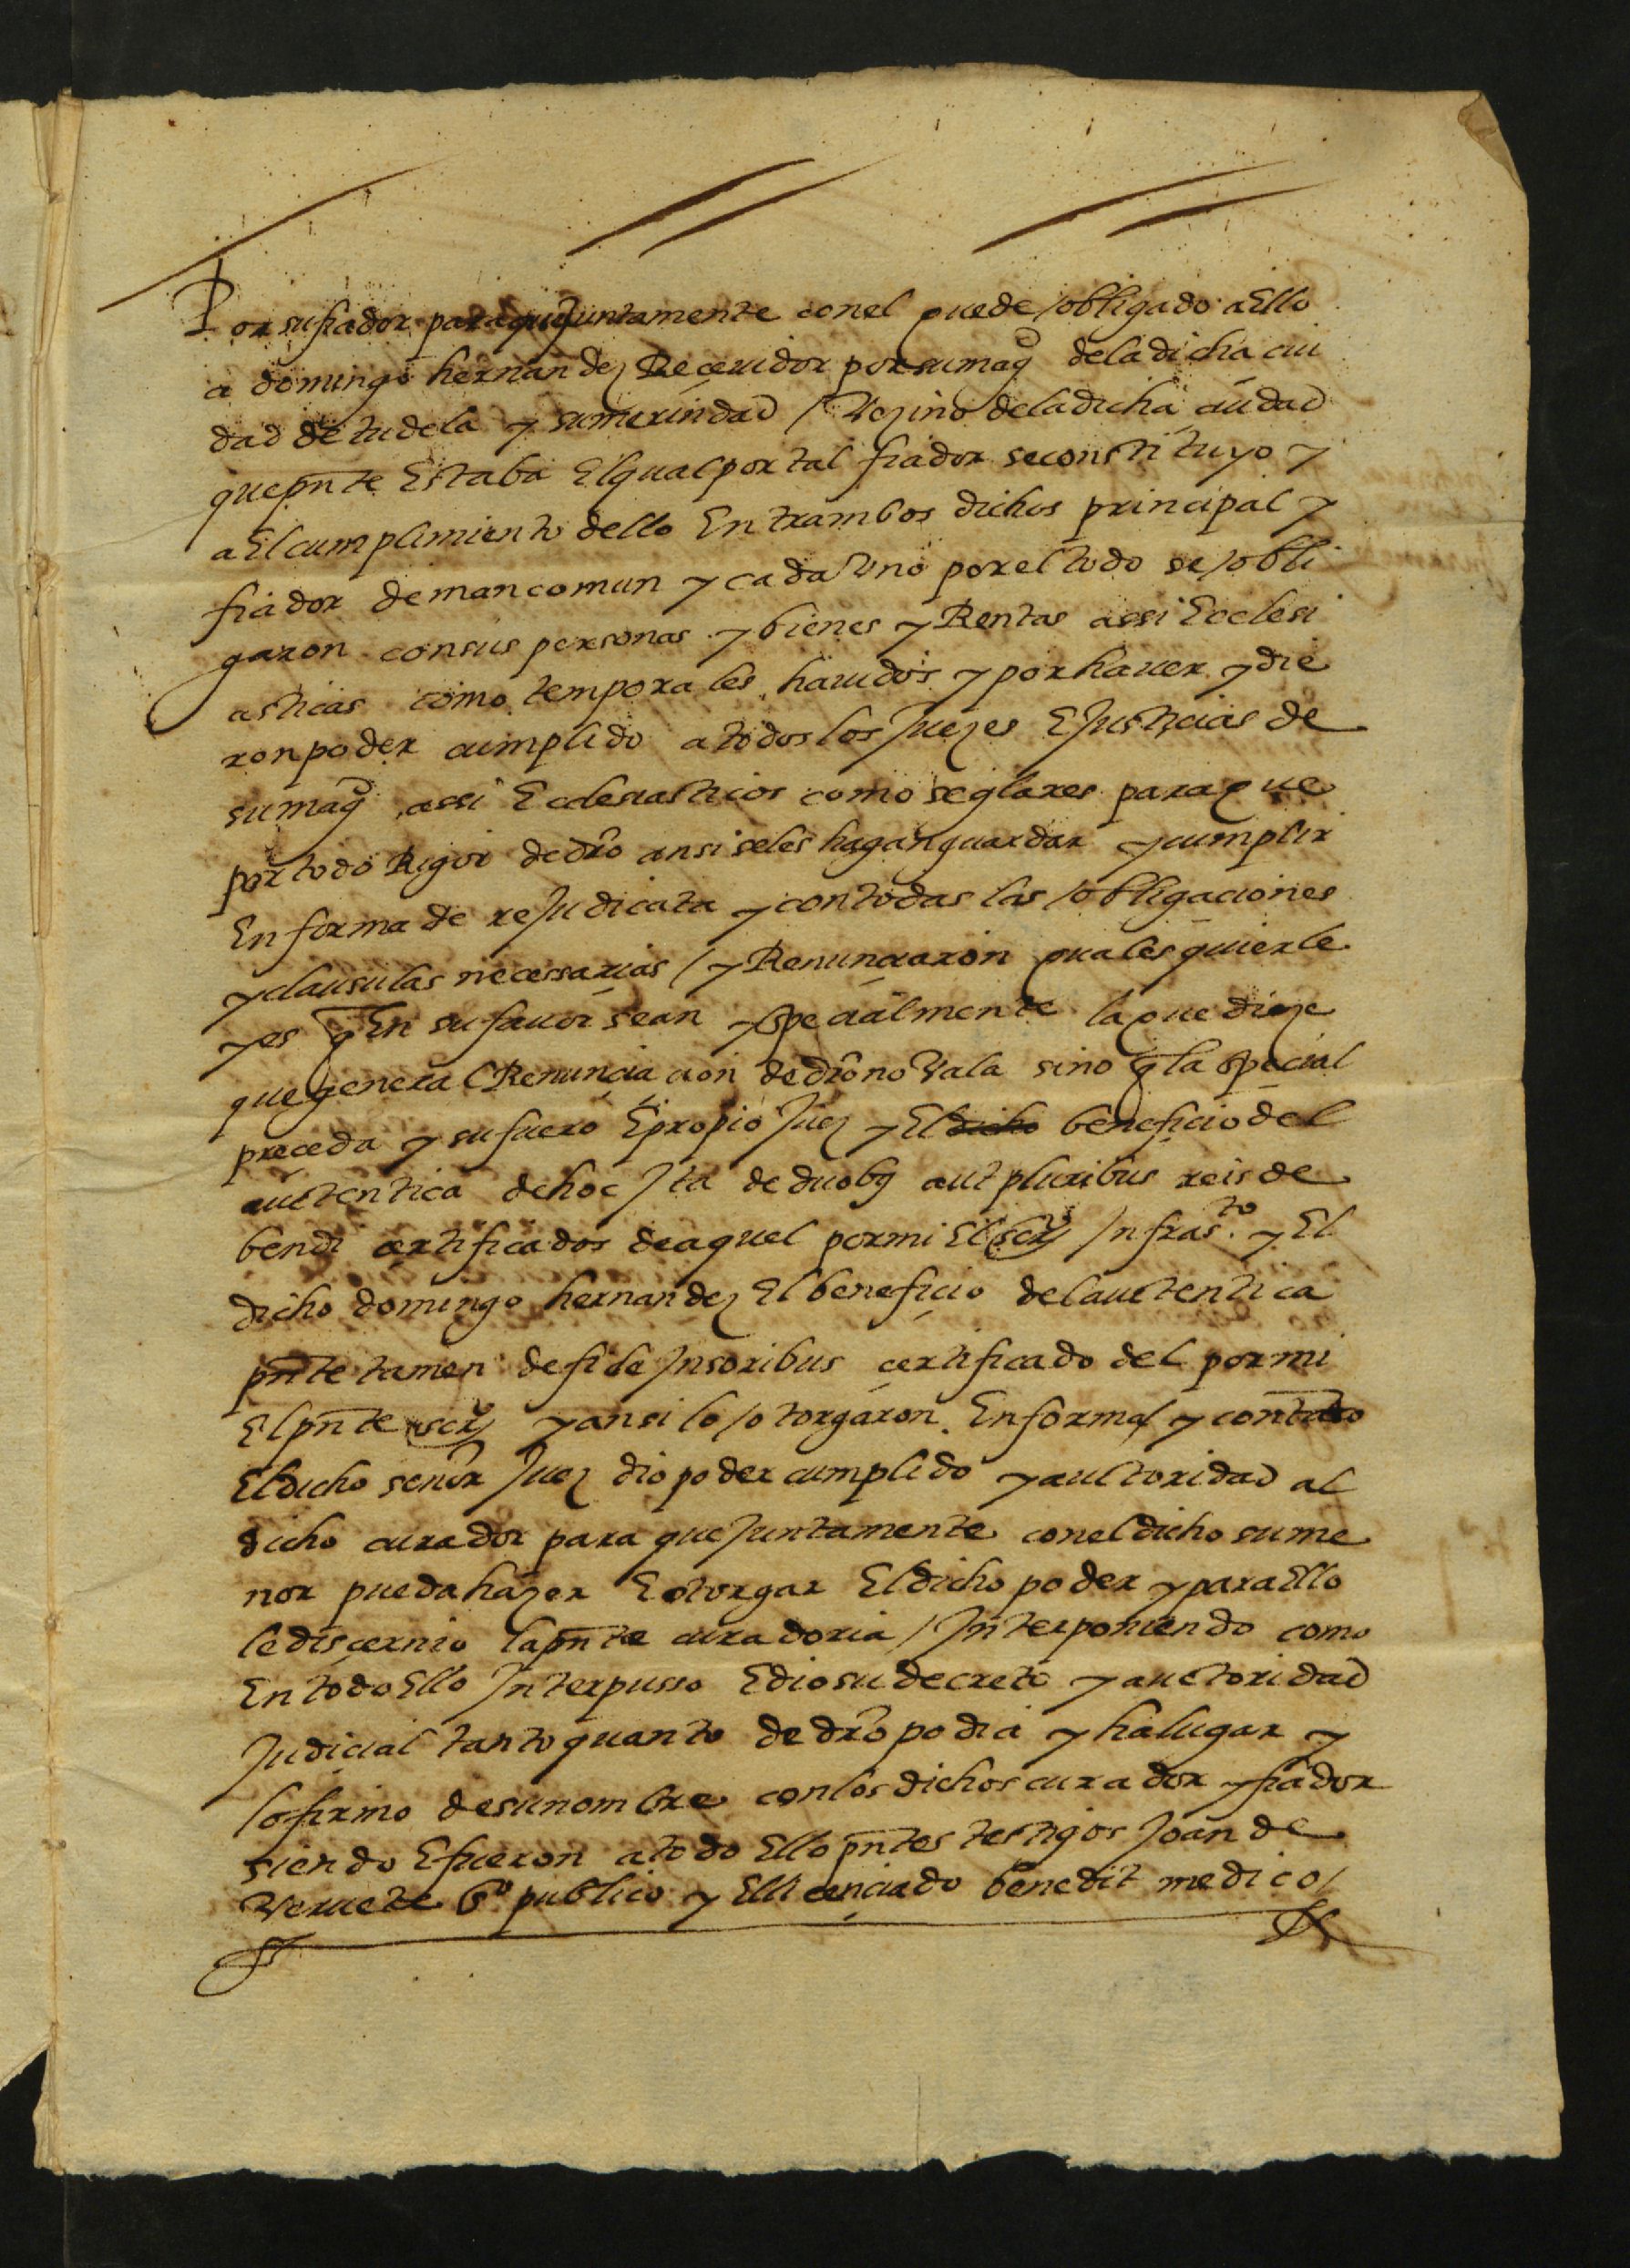 Por su fiador para que Juntamente con el quede obligado a Ello
a domingo hernandez Receuidor por su magd de la dicha ciu
dad de tudela y su merindad / Vezino de la dicha ciudad
que pnte Estaba El qual por tal fiador se constituyo y
a El cumplimiento dello Entrambos dichos principal y
fiador de mancomun y cada Vno por el todo se obli
garon con sus personas y bienes y Rentas assi Ecclesi
asticas como temporales hauidos y por hauer y die
ron poder cumplido a todos los Juezes E Justicias de
su magd assi Ecclesiasticos como seglares para que
por todo Rigor de dro ansi se les hagan guardar y cumplir
En forma de re Judicata y con todas las obligaciones
y clausulas necessarias / y Renunciaron quales quier le
yes q En su fauor sean y specialmente la que dize
que general Renunciacion de dro no Vala sino q la special
preceda y su fuero E propio Juez y El dicho beneficio del
autentica de hoc Ita de duobus aut pluribus reis de
bendi certificados de aquel por mi El scrno Infrasto. y El
dicho domingo hernandez El beneficio del autentica
pnte tamen de fide Jnsoribus certificado del por mi
El pnte scrno y ansi lo otorgaron En forma y con tanto
El dicho señor Juez dio poder cumplido y auttoridad al
dicho curador para que Juntamente con el dicho su me
nor pueda hazer E otorgar El dicho poder y para Ello
le discernio la pnte curadoria / Interponiendo como
En todo Ello Interpusso E dio su decreto y auctoridad
Judicial tanto quanto de dro podia y ha lugar y
lo firmo de su nombre con los dichos curador y fiador
siendo E fueron a todo Ello pntes testigos Joan de
Veruete no publico y El licenciado benedit medico /